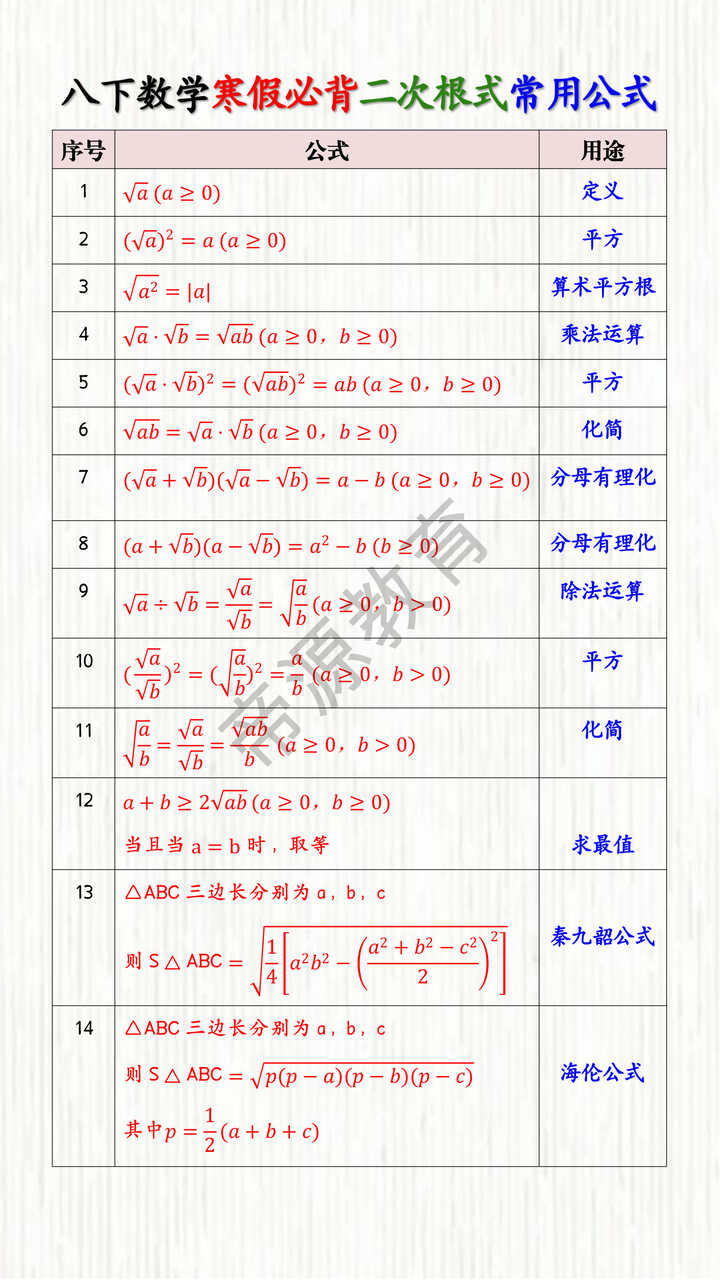 八下数学寒假必背二次根式常用公式
序号 公式 用途
1 √a (a ≥ 0) 定义
2 (√a)² = a (a ≥ 0) 平方
3 √(a²) = |a| 算术平方根
4 √a · √b = √(ab) (a ≥ 0，b ≥ 0) 乘法运算
5 (√a · √b)² = (√(ab))² = ab (a ≥ 0，b ≥ 0) 平方
6 √(ab) = √a · √b (a ≥ 0，b ≥ 0) 化简
7 (√a + √b)(√a − √b) = a − b (a ≥ 0，b ≥ 0) 分母有理化
8 (a + √b)(a − √b) = a² − b (b ≥ 0) 分母有理化
9 √a ÷ √b = √a/√b = √(a/b) (a ≥ 0，b > 0) 除法运算
10 (√a/√b)² = (√(a/b))² = a/b (a ≥ 0，b > 0) 平方
11 √(a/b) = √a/√b = √(ab)/b (a ≥ 0，b > 0) 化简
12 a + b ≥ 2√(ab) (a ≥ 0，b ≥ 0)
当且当 a = b 时，取等 求最值
13 △ABC 三边长分别为 a，b，c
则 S△ABC = √(1/4[a²b² − ((a² + b² − c²)/2)²]) 秦九韶公式
14 △ABC 三边长分别为 a，b，c
则 S△ABC = √(p(p − a)(p − b)(p − c)) 海伦公式
其中p = 1/2 (a + b + c)
帝源教育